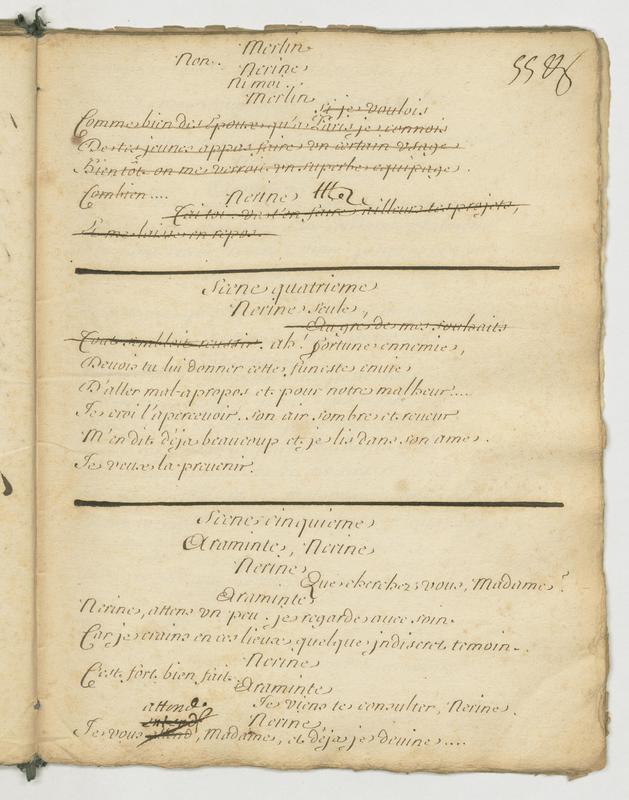 Merlin
Non..
Nerine
Ni moi..
Merlin
si je voulois
Comme bien des Epoux qu'a Paris je connois
De tes jeunes appas faire un certain usage
Bientôt on me verroit un superbe equipage.
Combien.... Nerine
Tai toi. va t'en faire ailleurs tes projets,
Et me laisse en repos.
Scene quatrieme
Nerine seule,
Au gré de mes souhaits
Tout sembloit reussir. ah! fortune ennemie,
Devois tu lui donner cette funeste envie
D'aller mal-apropos et pour notre malheur....
Je croi l'apercevoir. son air sombre et reveur
M'en dit déja beaucoup et je lis dans son ame.
Je veux la prevenir.
Scene cinquieme
Araminte, Nerine
Nerine
Que cherchez vous, Madame?
Araminte
Nerine, attens un peu. je regarde avec soin.
Car je crains en ces lieux quelque jndiscret temoin..
Nerine
C'est fort bien fait.
Araminte
Je viens te consulter, Nerine.
attend
Nerine
Je vous, Madame, et déja je devine....